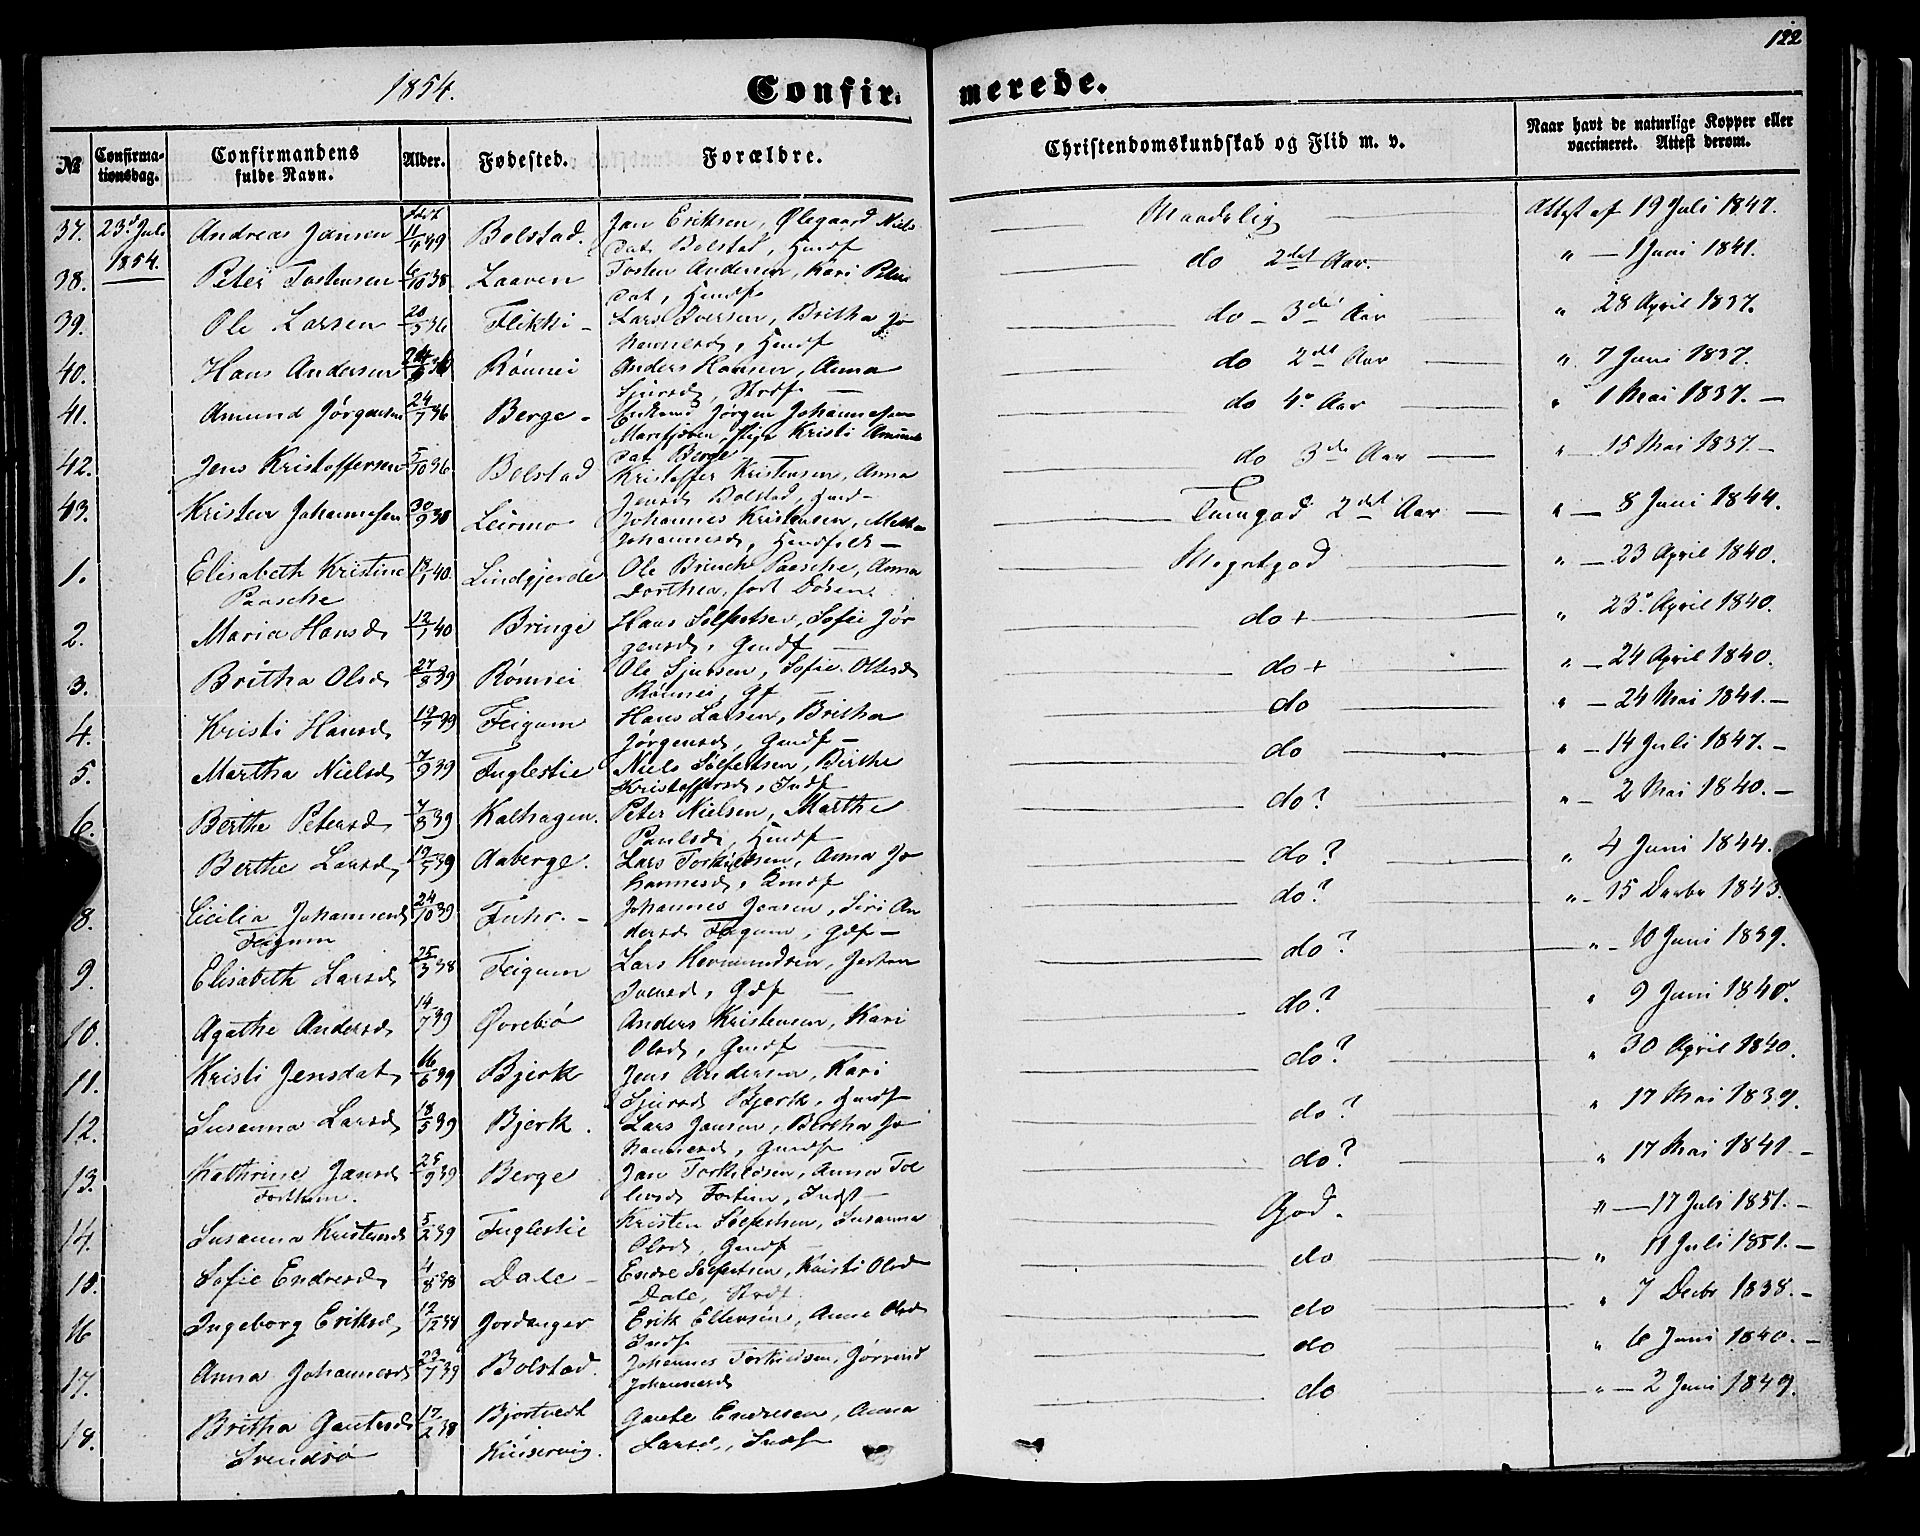 122
1854.
Confir- merede.
№ Confirma-tionsdag. Confirmandens fulde Navn. Alder. Fødested. Forældre. Christendomskundskab og Flid m. v. Naar havt de naturlige Kopper eller vaccineret. Attest derom.
37. 23d Juli 1854. Andreas Jansen 39 Bolstad. Jan Eriksen, Ølegaard Niels
dat Bolstad, Hmdf Maadelig Attest af 19 Juli 1847.
38. Peter Tostensen 6/10 38 Laaven Tosten Andersen, Kari Peters
dat, Hmdf do 2det Aar. " — 1 Juni 1841.
39. Ole Larsen 20/5 36 Flikki - Lars Iversen, Britha Jo
hannesd, Hmdf do - 3die Aar " 28 April 1837.
40. Hans Andersen Rönnei Anders Hansen, Anna
Sjursd, Strdf do 2det Aar " 7 Juni 1837.
41. Amund Jørgensen 24/7 36 Berge - Enkemd Jørgen Johannesen
Marifjæren, Pige Kristi Amunds
dat Berge do 4e Aar " 1 Mai 1837. —
42. Jens Kristoffersen 5/10 36 Bolstad Kristoffer Kristensen, Anna
Jensd Bolstad, Hmd- do 3die Aar " - 15 Mai 1837. —
43. Kristen Johannesen 30/9 38 Leirmo Johannes Kristensen, Mette
Johannesd, Hmdfolk — Temgod 2det Aar " — 8 Juni 1844.
1. Elisabeth Kristine
Paasche 18/1 40. Lindgjerde Ole Brinch Paasche, Anna
Dorthea, født Døsen Megetgod " — 23 April 1840.
2. Maria Hansd 12/1 40 Bringe Hans Sølfestsen, Sofie Jør
gensd, Gmdf — do + " 23. April 1840.
3. Britha Olsd 27/8 39 Rönnei Ole Sjursen, Sofie Ottesd
Rönnei, Gf — do + " — 24 April 1840.
4. Kristi Hansd 39 Feigum Hans Larsen, Britha
Jørgensd, Gmdf — do " — 24 Mai 1841. —
5. Martha Nielsd 7/9 39 Fuglestie Niels Sølfestsen, Birthe
Kristoffersd, Indf do " — 14 Juli 1847. —
6. Berthe Petersd 7/8 39 Kalhagen. Peter Nielsen, Marthe
Paulsd, Hmdf do? " — 2 Mai 1840. —
Berthe Larsd 39 Aaberge. Lars Torkildsen, Anna Jo
hannesd, Hmdf do? " 4 Juni 1844. —
8. Cicilia Johannesd
Feigum 24/10 39 Fuhr. - Johannes Joensen, Siri An
dersd Feigum, Gdf — do? " - 15 Decbr 1843.
9. Elisabeth Larsd 25/3 38 Feigum Lars Hermundsen, Jertru
Iversd, Gdf — do? " - 10 Juni 1839.
10. Agathe Andersd 14/7 39 Øvrebø Anders Kristensen, Kari
Olsd, Gmdf — do? " 9 Juni 1840.
11. Kristi Jensdat 16/6 39 Bjerk Jens Andersen, Kari
Sjursd Bjerk, Hmdf do? " 30 April 1840.
12. Susanna Larsd 18/5 39 Bjerk. Lars Jansen, Bertha Jo
hannesd, Gmdf do? " 17 Mai 1839.
13. Kathrine Jansd
Forthun. 25/9 39 Berge Jan Torkildsen, Anna Tol
levsd Fortun, Indst — do? " 17 Mai 1841. —
14. Susanna Kristensd 5/2 39 Fuglestie Kristen Sølfestsen, Susanna
Olsd, Gmdf — God. " — 17 Juli 1851. —
15. Sofie Endresd 4/8 38 Dale - Endre Sølfestsen, Kristi Olsd
Dale, Strdf. do " 11 Juli 1851. —
16 Ingeborg Eriksd, 12/2 38 Jordanger Erik Ellersen, Anne Olsd
Indf do " 7 Decbr 1838. —
17. Anna Johannesd 23/7 39 Bolstad. Johannes Torkildsen, Jørend
Johannesd do " 6 Juni 1840. —
18. Britha Gautesd
Svendsø 17/2 38 Bjortvedt
Kinservig. Gaute Endresen, Anna
Larsd, Indf do " — 2 Juni 1849.